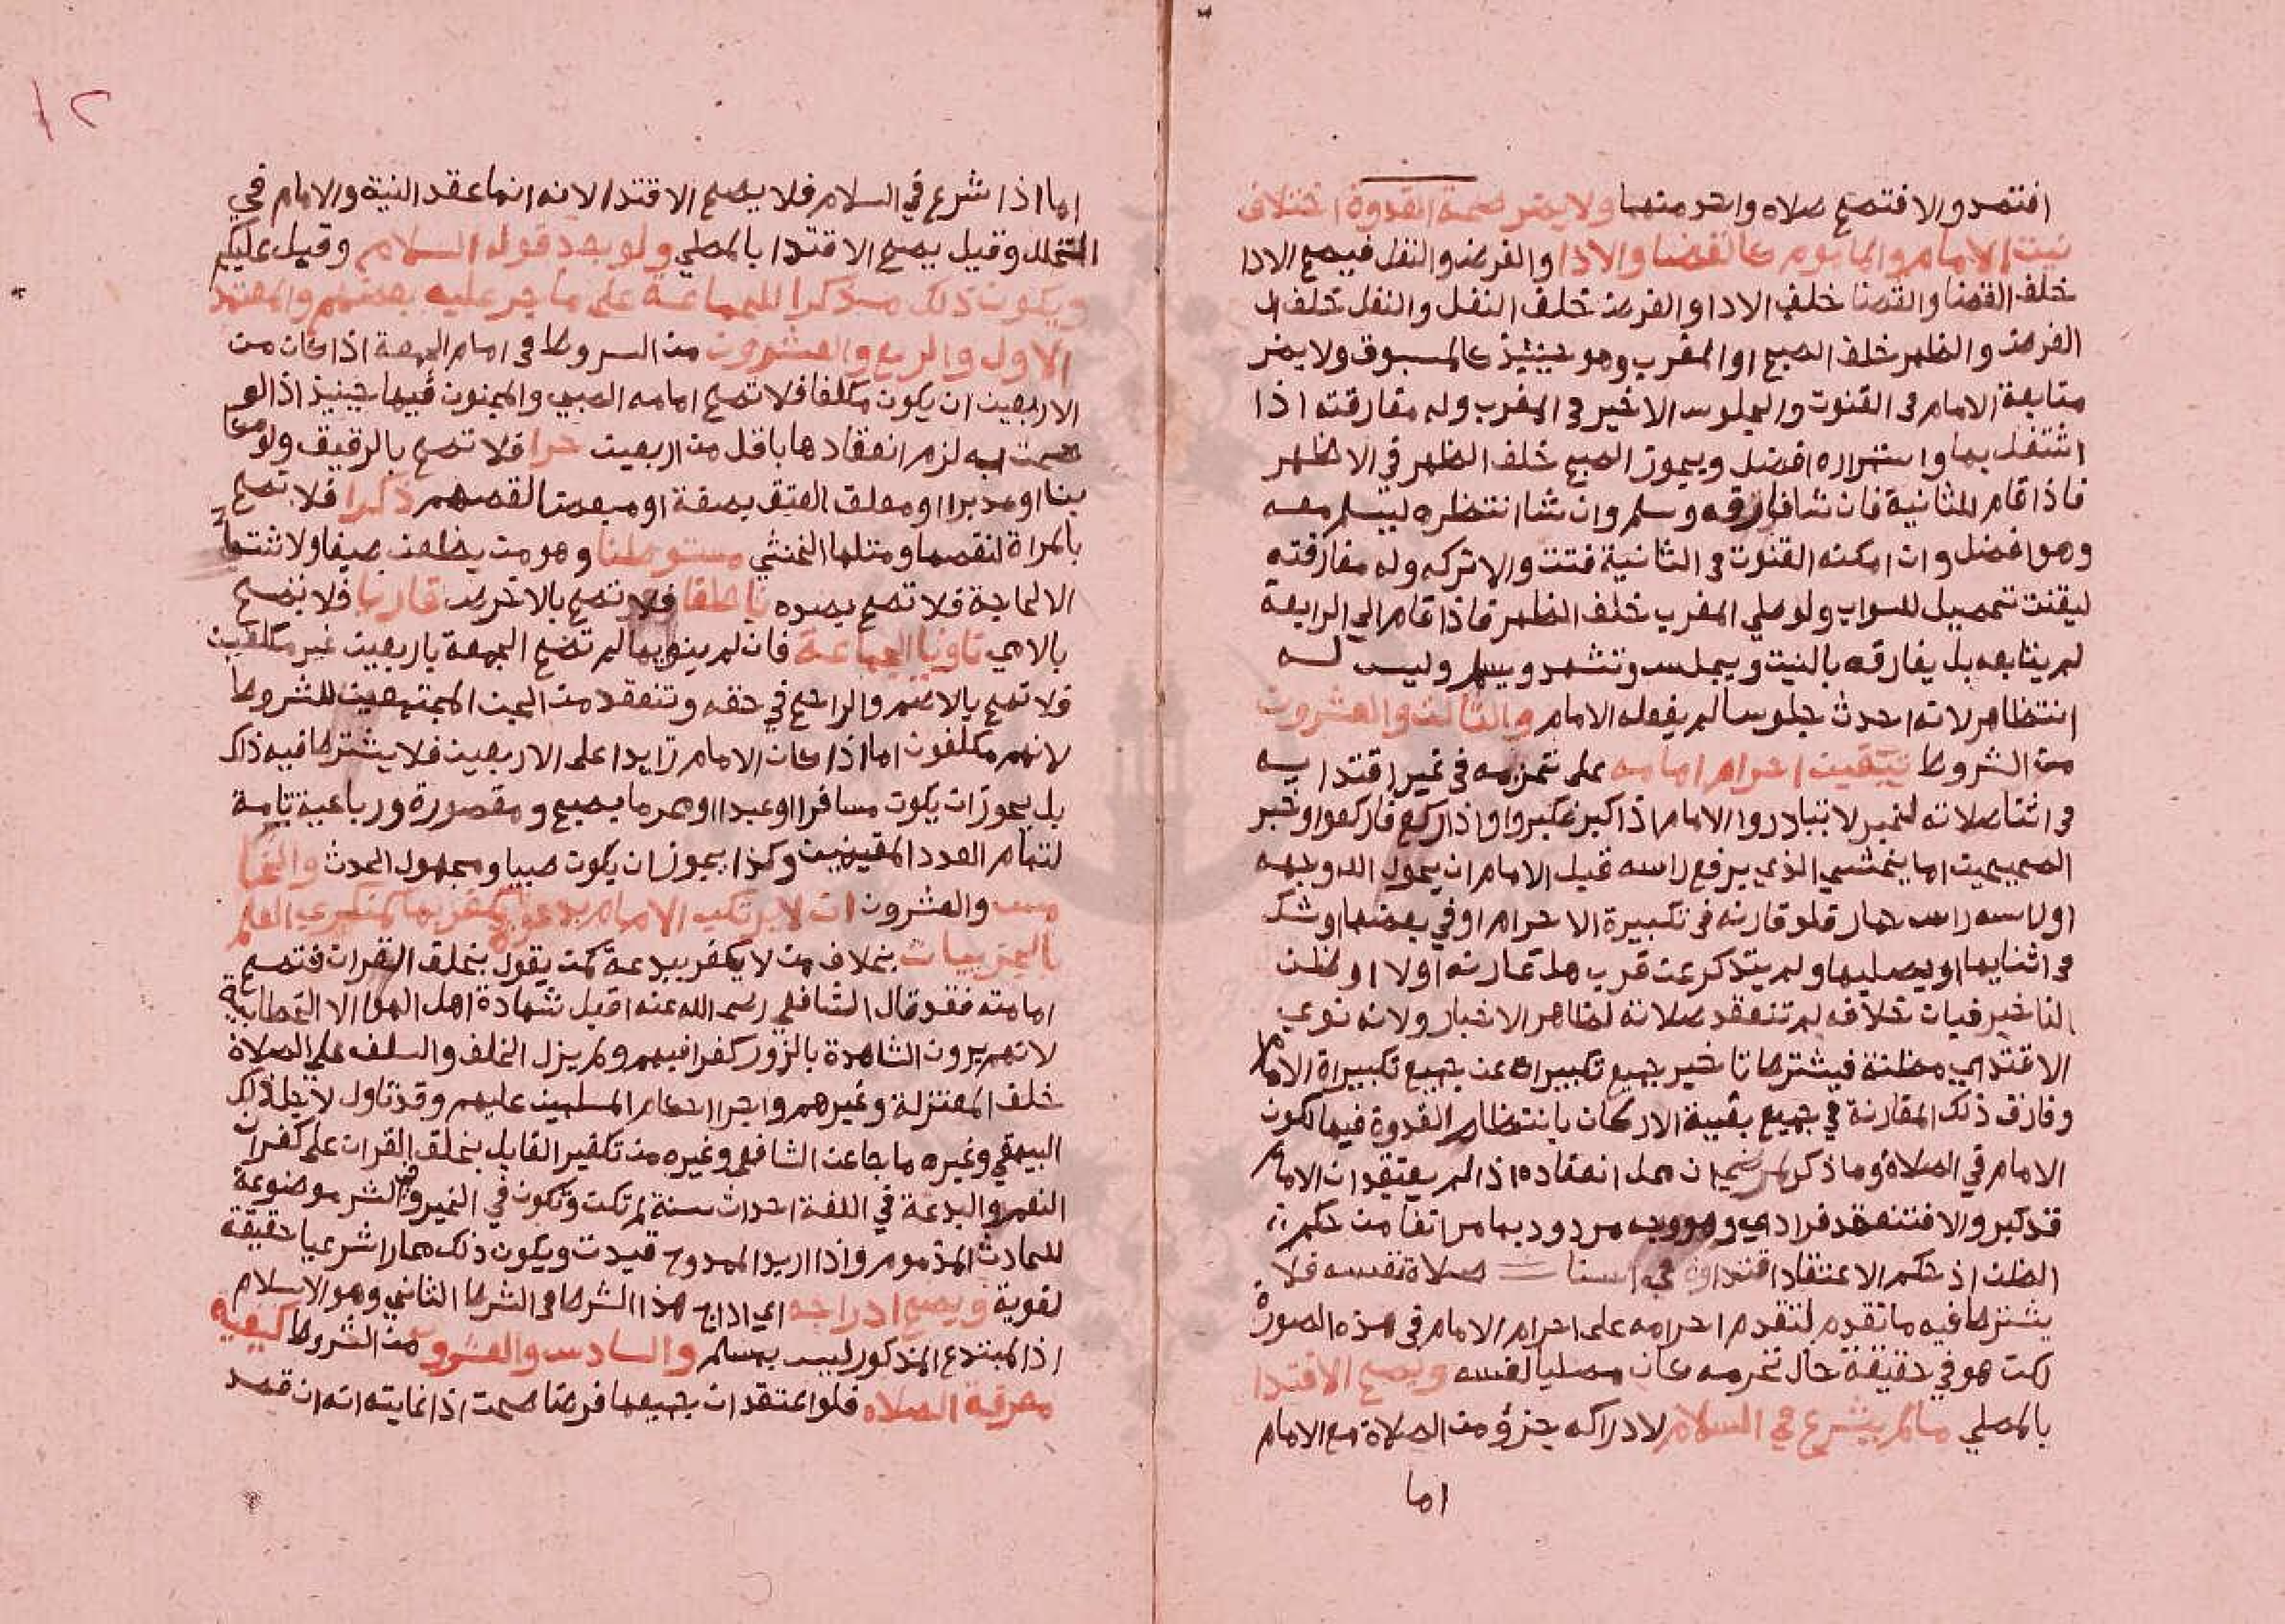 افتمد والا فتصح صلاه واحد منهما ولا يضر صحة القدوة اختلاف
نيت الامام والماموم كالقضا والادا والفرض والنفل فيصح الادا
خلف القضا والقضا خلف الادا والفرض خلف النفل والنفل خلف ا
الفرض والظهر خلف الصبح او المغرب وهو حينيذ كالمسبوق ولا يضر
متابعة الامام في القنوت والجلوس الاخير في المغرب وله مفارقته اذا
اشتغل بها واستمراره افضل ويجوز الصبح خلف الظهر في الاظهر
فاذا قام للثانية فان شا فارقه وسلم وان شا انتظره ليسلم معه
وهو افضل وان امكنه القنوت في الثانية قنت والا تركه وله مفارقته
ليقنت تحصيل للسواب ولو صلي المغرب خلف الظهر فاذا قام الي الرابعة
لم يتابعه بل يفارقه بالنيت ويجلس وتشهد ويسلم وليس له
انتظاهر لانه احدث جلوسا لم يفعله الامام والثالث والعشرون
من الشروط تيقيت احرام امامه على تحرمه في غير اقتدا به
في اثنا صلاته لخبر لا تبادروا الامام اذا كبر فكبروا واذا ركع فاركعوا وخبر
الصحيحيت اما يخشي الذي يرفع راسه قبل الامام ان يحول الله وجهه
او راسه راس حمار فلو قارنه في تكبيرة الاحرام او في بعضها او شك
في اثنايها او بعدها ولم يتذكر عن قرب هل قارنه او لا او ظن
التاخير فبان خلافه لم تنعقد صلاته لظاهر الاخبار ولانه نوي
الاقتدا بمن مظنته فيشترط تاخير جميع تكبيراته عن جميع تكبيراة الامام
وفارق ذلك المقارنة في جميع بقية الاركان بانتظام القدوة فيها لكون
الامام في الصلاة وما ذكر من ان محل انعقاده اذا لم يعتقد ان الامام
قد كبر والا فتنعقد فرادي وهو وجه مردود بما مر انفا من حكم
الظن اذ حكم الاعتقاد اقتداوه في اثنا صلاة نفسه فلا
يشترط فيه ما تقدم لتقدم احرامه على احرام الامام في هذه الصورة
لكن هو في حقيقة حال تحرمه كان مصليا لنفسه ويصح الاقتدا
بالمصلي مالم يشرع في السلام لادراكه جزؤ من الصلاة مع الامام
اما
١٢
اما اذا شرع في السلام فلا يصح الاقتدا لانه انما عقد النية والامام في
التحلل وقيل يصح الاقتدا بالمصلي ولو بعد قوله السلام وقبل عليكم
ويكون ذلك مدركا للجماعة على ما جر عليه بعضهم والمعتمد
الاول والربع والعشرون من السروط في امام الجمعة اذا كان من
الاربعين ان يكون مكلفا فلا تصح امامه الصبي والمجنون فيها حينيذ اذ لو
صحت به لزم انعقادها باقل من اربعين حرا فلا تصح بالرقيق ولو مكا
تبا او مدبرا او معلق العتق بصفة او مبعضا لنقصهم ذكرا فلا تصح
بالمراة لنقصها ومثلها الخنثي مستوطنا وهو من يظعن صيفا ولا شتا
الا لحاجة فلا تصح بضده ناطقا فلا تصح بالاخرس قاريا فلا تصح
بالامي ناويا الجماعة فان لم ينويها لم تصح الجمعة باربعين غير مكلفين
فلا تصح بالاعتم والراجح في حقه وتنعقد من الجن المجتمعين للشروط
لانهم مكلفون اما اذا كان الامام زايدا على الاربعين فلا يشترط فيه ذلك
بل يجوز ان يكون مسافرا او عبدا او محرما بصبح ومقصورة ورباعية تامة
لتمام العدد المقيمين وكذا يجوز ان يكون صبيا ومجهول الحدث والخا
مس والعشرون ان لا يرتكب الامام بدعة يكفر بها كمنكري العلم
بالجزييات بخلاف من لا يكفر ببدعة كمن يقول بخلق القران فتصح
امامته فقد قال الشافعي رضى الله عنه اقبل شهادة اهل الهوا الا الخطابية
لانهم يرون الشاهدة بالزور كفرا فيهم ولم يزل الخلف والسلف على الصلاة
خلف المعتزلة وغيرهم واجرا احكام المسلمين عليهم وقد تاول لاجل ذلك
البيهقي وغيره ما جا عن الشافعي وغيره من تكفير القايل بخلق القران على كفران
النعم والبدعة في اللغة احداث سنة لم تكن وتكون في الخير والشر موضوعة
للحادث المذموم واذا اريد الممدوح قيدت ويكون ذلك مجازا شرعيا حقيقة
لغوية ويصح ادراجه اي ادراج هذا الشرط في الشرط الثاني وهو الاسلام
اذ المبتدع المذكور ليس بمسلم والسادس والعشرون من الشروط كيفيه
معرفة الصلاه فلو اعتقد ان جميعها فرضا صحت اذ غايته انه ان قصد